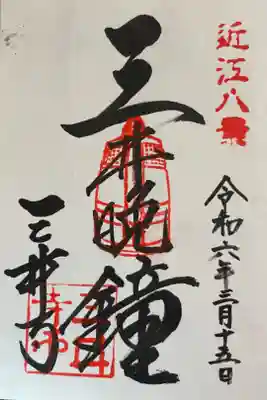 近江八景
令和六年三月十五日
三井晩鐘
三井寺